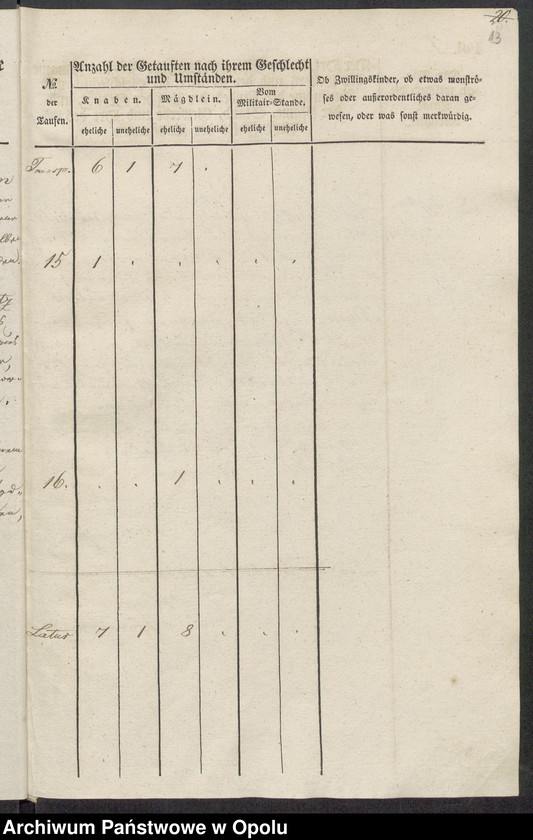 20.
13
Anzahl der Getauften nach ihrem Geschlecht
und Umständen.
№
der
Taufen.
Knaben.
Mägdlein.
Vom
Militair-Stande.
eheliche uneheliche eheliche uneheliche eheliche uneheliche
Ob Zwillingskinder, ob etwas monströ-
ses oder außerordentliches daran ge-
wesen, oder was sonst merkwürdig.
Transp. 6 1 7 .
15 1 . . . . .
16. . . 1 . . .
Latus 7 1 8 . . .
Archiwum Państwowe w Opolu